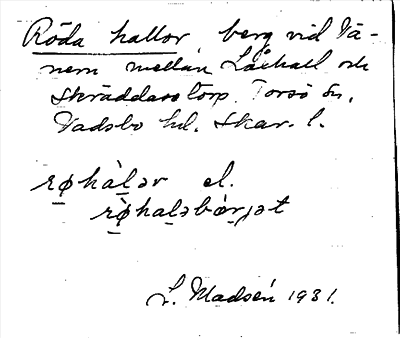 Röda hallor berg vid Vä-
nern mellan Låxhall och
Skräddaretorp. Torsö sn.
Vadsbo hd. Skar. l.
rø̀hàlər el.
rø̀haləbærjət
L. Madsén 1931.